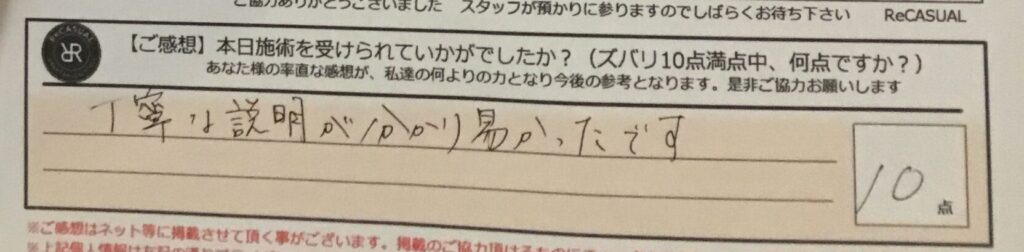 ご協力ありがとうございました スタッフが預かりに参りますのでしばらくお待ち下さい ReCASUAL
ReCASUAL
【ご感想】本日施術を受けられていかがでしたか？（ズバリ10点満点中、何点ですか？）
あなた様の率直な感想が、私達の何よりの力となり今後の参考となります。是非ご協力お願いします
丁寧な説明が分かり易かったです
10点
※ご感想はネット等に掲載させて頂く事がございます。掲載のご協力頂けるものに
※上記個人情報は